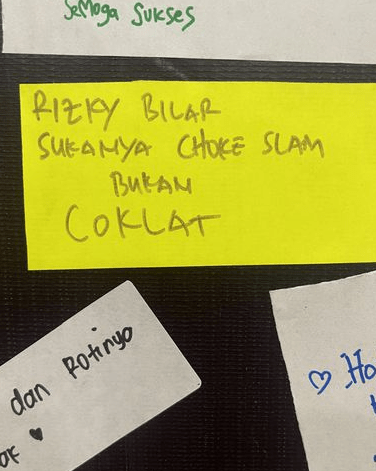 Semoga Sukses
RIZKY BILAR
SUKANYA CHOKE SLAM
BUKAN
COKLAT
dan Rotinya
♥
♡ Ho